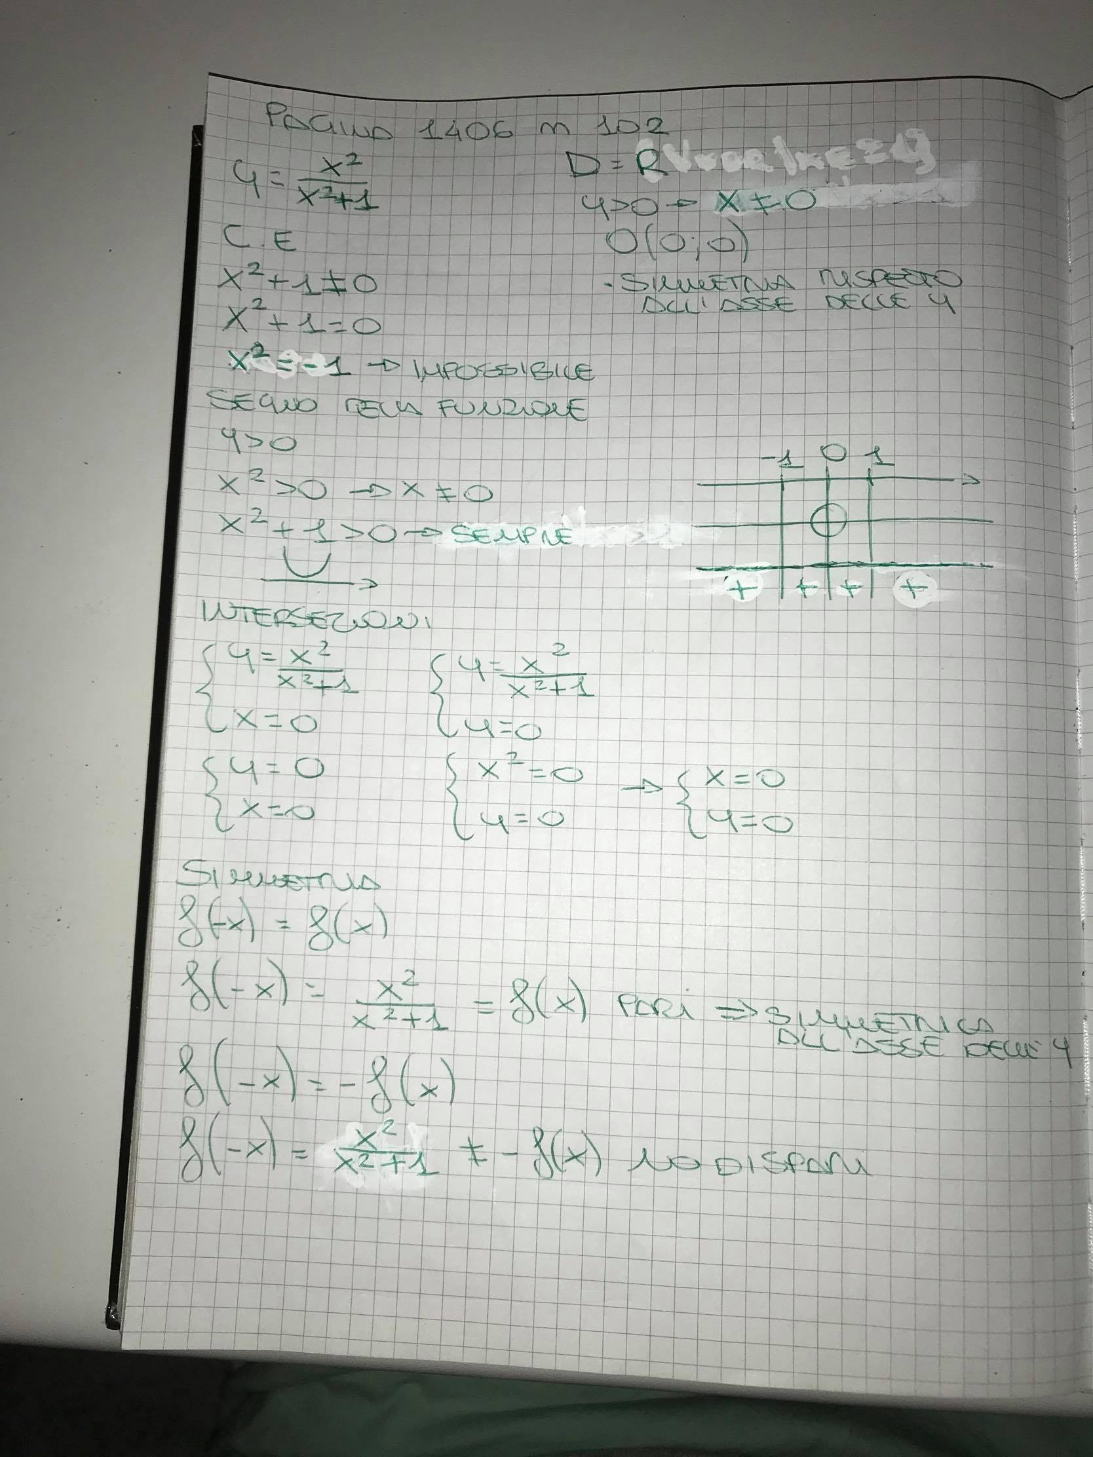 PAGINA 1406 n 102
y = x²/(x²+1)
D = R
y>0 → x ≠ 0
C.E
O(0;0)
x²+1≠0
- SIMMETRIA RISPETTO
ALL'ASSE DELLE y
x²+1=0
x²=-1 → IMPOSSIBILE
SEGNO DELLA FUNZIONE
y>0
-1 0 1
x²>0 → x ≠ 0
x²+1>0 → SEMPRE
+ + + +
INTERSEZIONI
{ y = x²/(x²+1) { y = x²/(x²+1)
{ x=0 { y=0
{ y=0 { x²=0 → { x=0
{ x=0 { y=0 { y=0
SIMMETRIA
f(-x) = f(x)
f(-x) = x²/(x²+1) = f(x) PARI ⇒ SIMMETRICA
ALL'ASSE DELLE y
f(-x) = -f(x)
f(-x) = x²/(x²+1) ≠ -f(x) NO DISPARI